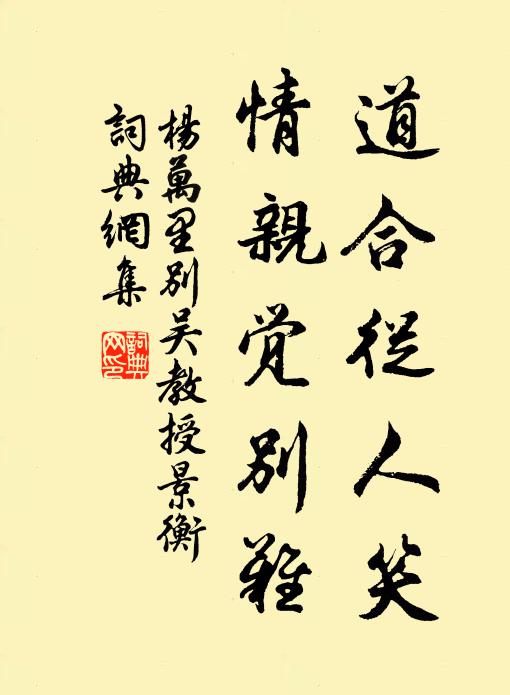 道合從人笑
情親覚別難
楊萬里別吴教授景衡
詞典網集
詞典
网印